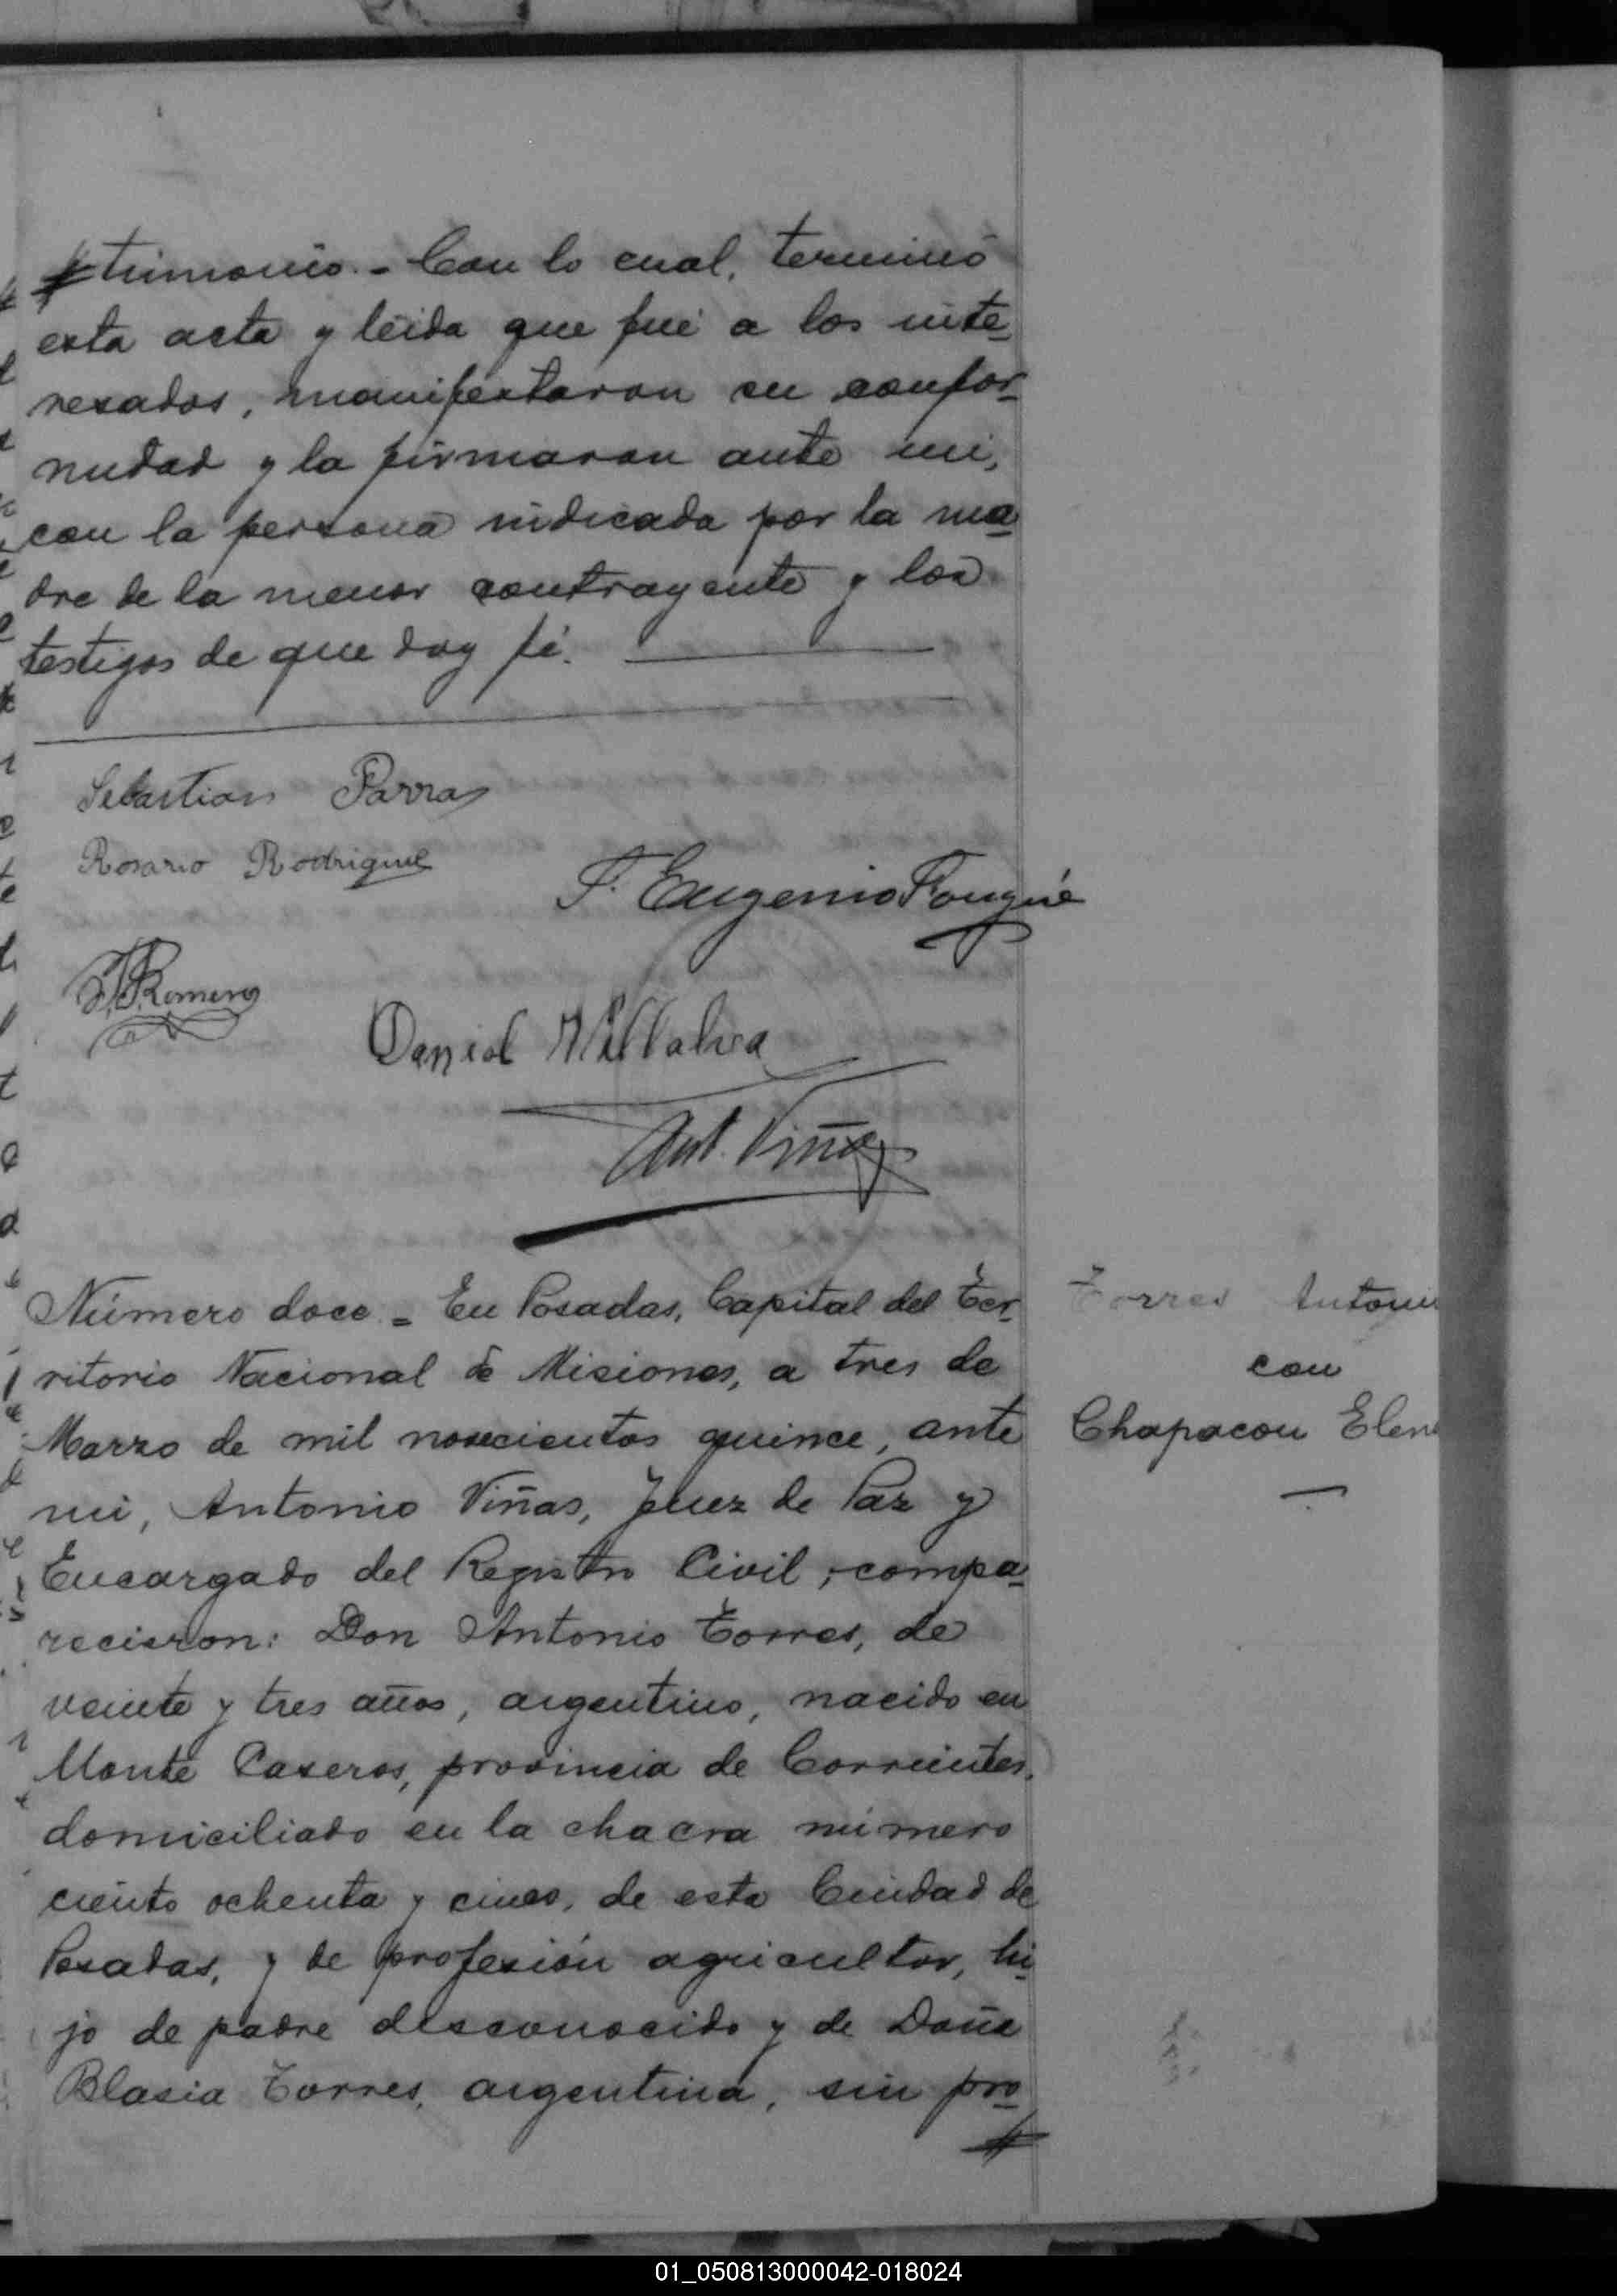 trimonio.- Con lo cual, terminó
esta acta y leida que fué a los inte-
resados, manifestaron su confor-
midad y la firmaron ante mi,
con la persona indicada por la ma-
dre de la menor contrayente y los
testigos de que doy fé.
Sebastian Parras
Rosario Rodriguez
F. Eugenio Fouqué
Romero
Daniel Villalva
Ant. Viñas
Número doce = En Posadas, Capital del Ter-
ritorio Nacional de Misiones, a tres de
Marzo de mil novecientos quince, ante
mi, Antonio Viñas, Juez de Paz y
Encargado del Registro Civil, compa-
recieron: Don Antonio Torres, de
veinte y tres años, argentino, nacido en
Monte Caseros, provincia de Corrientes,
domiciliado en la chacra número
ciento ochenta y cinco, de esta Ciudad de
Posadas, y de profesión agricultor, hi-
jo de padre desconocido y de Doña
Blasia Torres, argentina, sin pro-
Torres Antonio
con
Chapacou Elen
01_050813000042-018024